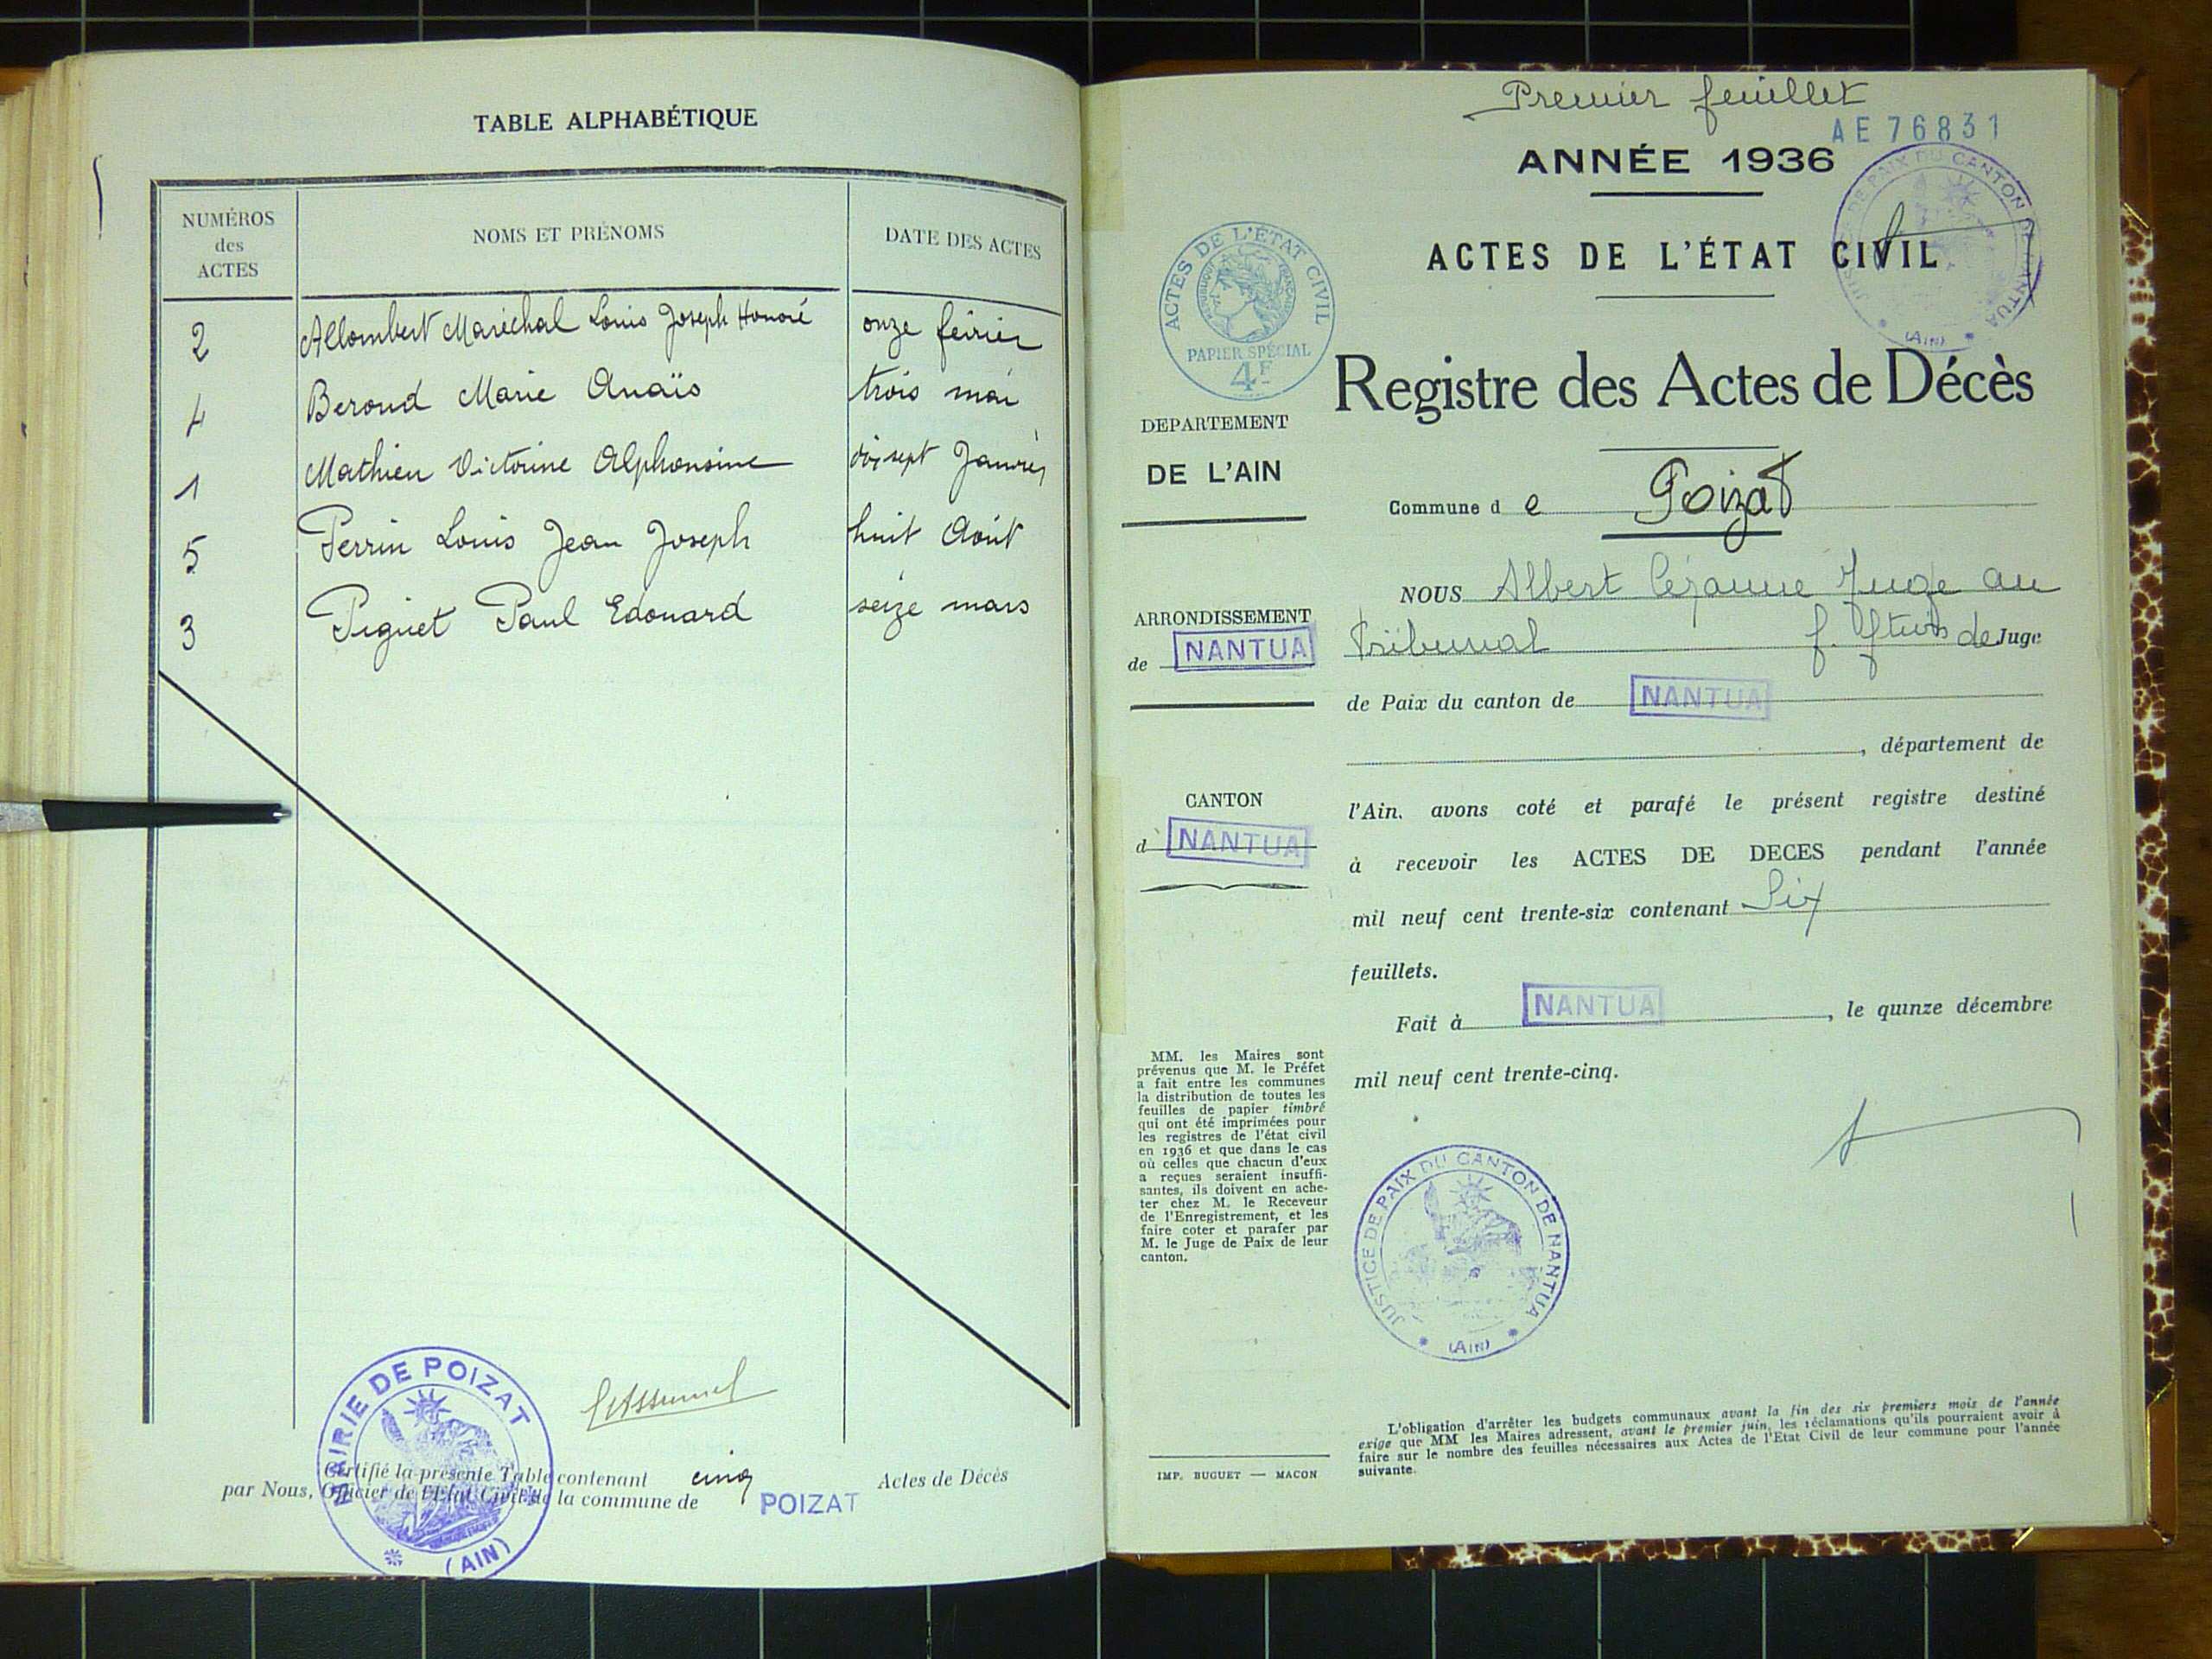 TABLE ALPHABÉTIQUE
NUMÉROS
des
ACTES
NOMS ET PRÉNOMS
DATE DES ACTES
2 Allombert Maréchal Louis Joseph Honoré onze février
4 Beroud Marie Anaïs trois mai
1 Mathieu Victorine Alphonsine dix sept Janvier
5 Perrin Louis Jean Joseph huit Août
3 Piguet Paul Edouard seize mars
MAIRIE DE POIZAT
(AIN)
Certifié la présente Table contenant cinq Actes de Décès
par Nous, Officier de l'Etat Civil de la commune de POIZAT
Premier feuillet
AE 76831
ANNÉE 1936
JUSTICE DE PAIX DU CANTON DE NANTUA
(AIN)
ACTES DE L'ÉTAT CIVIL
ACTES DE L'ÉTAT CIVIL
REPUBLIQUE FRANÇAISE
PAPIER SPÉCIAL
4F
Registre des Actes de Décès
DEPARTEMENT
DE L'AIN
Commune de Poizat
ARRONDISSEMENT
de NANTUA
CANTON
d NANTUA
NOUS Albert Cézanne Juge au
Tribunal f. de Juge
de Paix du canton de NANTUA
, département de
l'Ain, avons coté et parafé le présent registre destiné
à recevoir les ACTES DE DECES pendant l'année
mil neuf cent trente-six contenant Six
feuillets.
Fait à NANTUA, le quinze décembre
mil neuf cent trente-cinq.
MM. les Maires sont
prévenus que M. le Préfet
a fait entre les communes
la distribution de toutes les
feuilles de papier timbré
qui ont été imprimées pour
les registres de l'état civil
en 1936 et que dans le cas
où celles que chacun d'eux
a reçues seraient insuffi-
santes, ils doivent en ache-
ter chez M. le Receveur
de l'Enregistrement, et les
faire coter et parafer par
M. le Juge de Paix de leur
canton.
JUSTICE DE PAIX DU CANTON DE NANTUA
(AIN)
L'obligation d'arrêter les budgets communaux avant la fin des six premiers mois de l'année
exige que MM les Maires adressent, avant le premier juin, les réclamations qu'ils pourraient avoir à
faire sur le nombre des feuilles nécessaires aux Actes de l'Etat Civil de leur commune pour l'année
suivante.
IMP. BUGUET — MACON